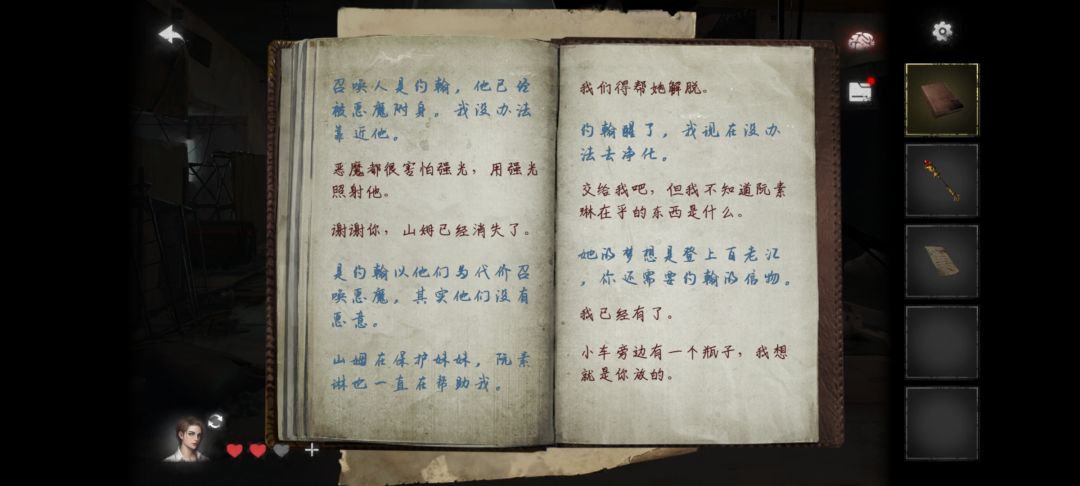 召唤人是约翰，他已经
被恶魔附身。我没办法
靠近他。
恶魔都很害怕强光，用强光
照射他。
谢谢你，山姆已经消失了。
是约翰以他们为代价召
唤恶魔，其实他们没有
恶意。
山姆在保护妹妹，阮素
琳也一直在帮助我。
我们得帮她解脱。
约翰醒了，我现在没办
法去净化。
交给我吧，但我不知道阮素
琳在乎的东西是什么。
她的梦想是登上百老汇
，你还需要约翰的信物。
我已经有了。
小车旁边有一个瓶子，我想
就是你放的。